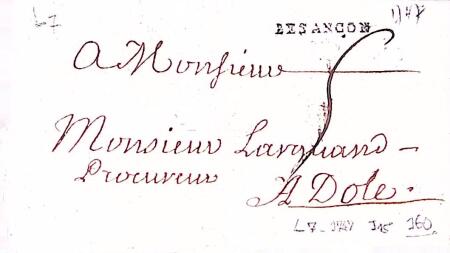 L7
BESANÇON
1747
A Monsieur
Monsieur Larquand
Procureur
A Dole.
L7_1747 J15 160